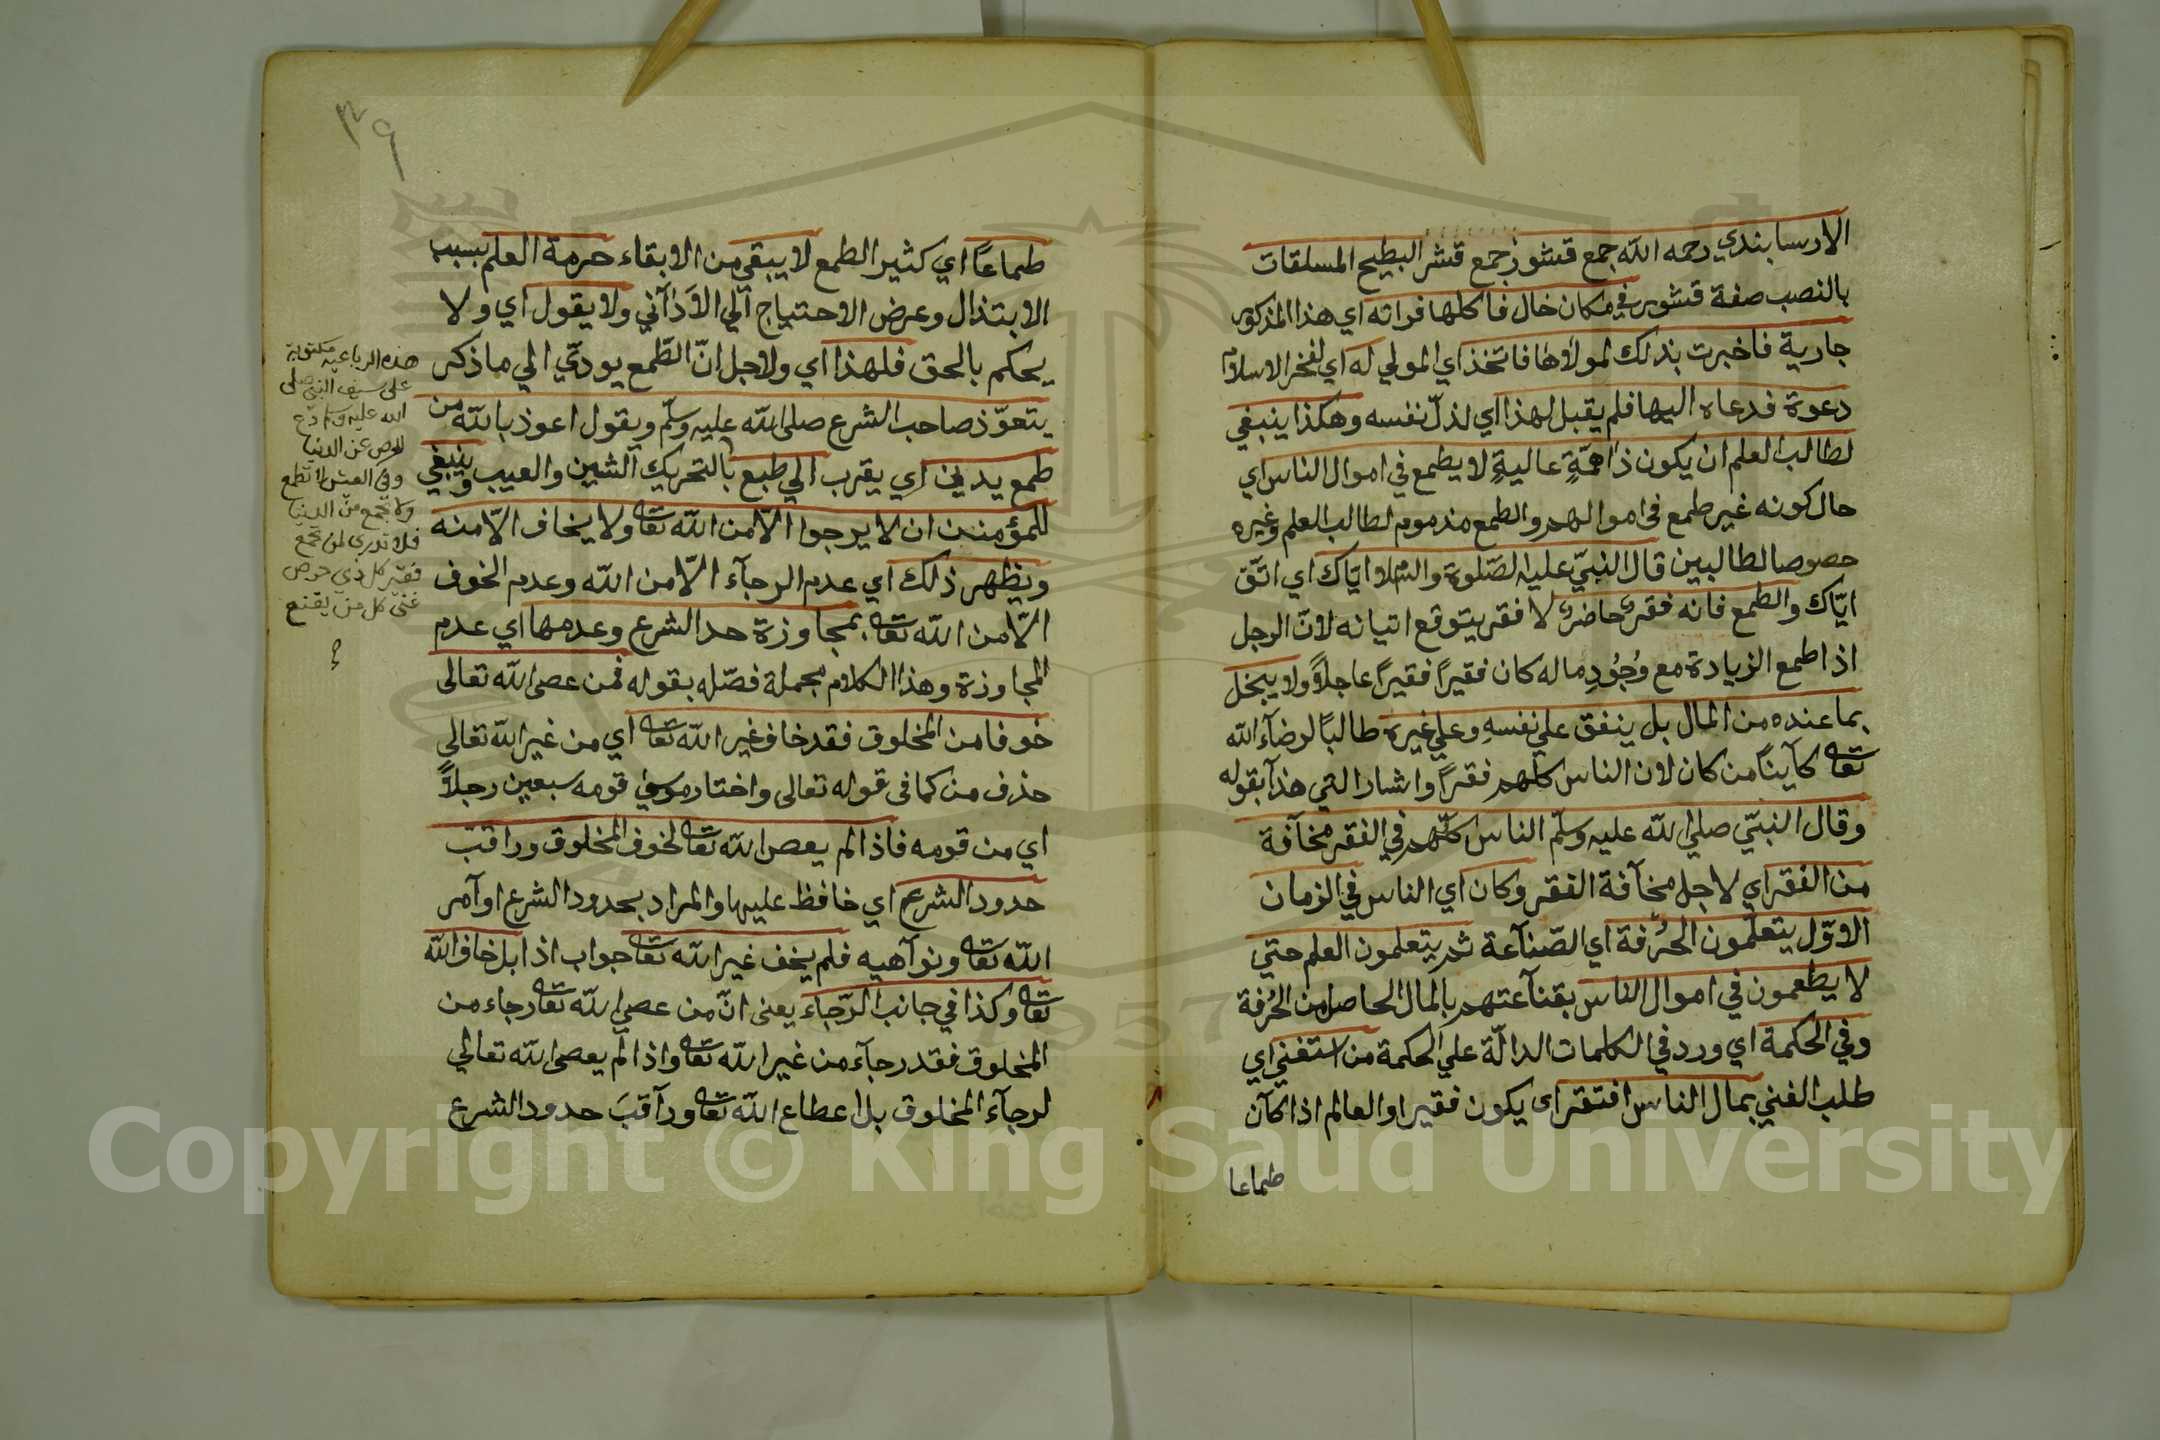 الارسابندي رحمه الله جمع قشور جمع قشر البطيح المسلقات
بالنصب صفة قشور في مكان خال فاكلها فراته اي هذا المذكور
جارية فاخبرت بذلك لمولاها فاتخذ اي المولي له اي لفخر الاسلام
دعوة فدعاه اليها فلم يقبل لهذا اي لذل نفسه وهكذا ينبغي
لطالب العلم ان يكون ذا همّةٍ عاليةٍ لا يطمع في اموال الناس اي
حال كونه غير طمع في اموالهم والطمع مذموم لطالب العلم وغيره
حصوصا لطالبين قال النبيّ عليه الصّلوة والسّلام ايّاك اي اتّق
ايّاك والطمع فانه فقر حاضر لا فقر يتوقع اتيانه لانّ الرجل
اذا طمع الزيادة مع وُجُودِ ماله كان فقيرًا فقيرًا عاجلًا ولا يبخل
بما عنده من المال بل ينفق علي نفسهِ وعلي غيره طالبًا لرضآء الله
تعا كآينًا من كان لان الناس كلّهم فقرًا واشار الي هذا بقوله
وقال النبيّ صلي الله عليه وسلّم الناس كلّهم في الفقر مخآفة
من الفقر اي لاجل مخآفة الفقر وكان اي الناس في الزمان
الاوّل يتعلّمون الحُرفة اي الصّناعة ثم يتعلمون العلم حتي
لا يطمعون في اموال الناس بقنآعتهم بالمال الحاصل من الحُرفة
وفي الحكمة اي ورد في الكلمات الدالّة علي الحكمة من استغني اي
طلب الغني بمال الناس افتقر اى يكون فقيرا والعالم اذا كان
طماعا
٣٩
طماعًا اي كثير الطمع لا يبقي من الابقاء حرمة العلم بسبب
الابتذال وعرض الاحتياج الي الاَدآني ولا يقول اي ولا
يحكم بالحق فلهذا اي ولاجل انّ الطّمع يودّي الي ما ذكر
يتعوّذ صاحب الشرع صلى الله عليه وسلّم ويقول اعوذ بالله من
طمع يدني اي يقرب الي طبع بالتحريك الشين والعيب وينبغي
للمؤمنين ان لا يرجوا الّا من الله تعا ولا يخاف الّا منه
ويظهر ذلك اي عدم الرجآء الّا من الله وعدم الخوف
الّا من الله تعا بمجاوزة حد الشرع وعدمها اي عدم
المجاوزة وهذا الكلام مجملة فصّله بقوله فمن عصى الله تعالى
خوفا من المخلوق فقد خاف غير الله تعا اي من غير الله تعالي
حذف من كما في قوله تعالى واختار موسي قومه سبعين رجلًا
اي من قومه فاذا لم يعص الله تعا لخوف المخلوق وراقب
حدود الشرع اي خافظ عليها والمراد بحدود الشرع اوآمر
الله تعا ونوآهيه فلم يخف غير الله تعا جواب اذا بل خاف الله
تعا وكذا في جانب الرّجآء يعنى انّ من عصي الله تعا رجاء من
المخلوق فقد رجآء من غير الله تعا واذا لم يعصى الله تعالي
لرجآء المخلوق بل اعطاع الله تعا ورآقبَ حدود الشرع
هذه الرباعيه مكتوبة
على سيف النبي صلى
الله عليه وسلم دع
الحرص عن الدنيا
وفي العيش لا تطمع
ولا تجمع من الدنيا
فلا تدرى لمن تجمع
فقير كل ذي حرص
غني كل من يقنع